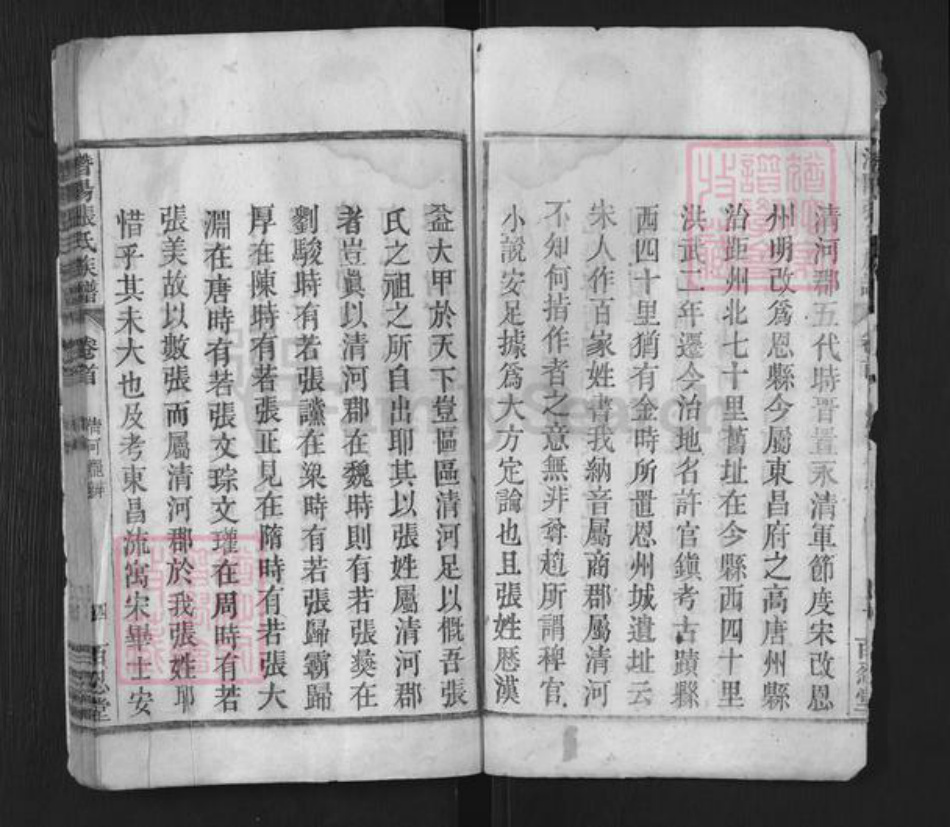 清河郡五代時晋置永清軍節度宋改恩
州明改爲恩縣今屬東昌府之高唐州縣
治距州北七十里舊址在今縣西四十里
洪武二年遷今治地名許官鎮考古蹟縣
西四十里猶有金時所置恩州城遺址云
朱人作百家姓書我納音屬商郡屬清河
不知何指作者之意無非尊趙所謂稗官
小說安足據爲大方定論也且張姓歷漢
益大甲於天下豈區區清河足以慨吾張
氏之祖之所自出耶其以張姓屬清河郡
者豈眞以清河郡在魏時則有若張彜在
劉駿時有若張讜在梁時有若張歸霸歸
厚在陳時有若張正見在隋時有若張大
淵在唐時有若張文琮文瓘在周時有若
張美故以數張而屬清河郡於我張姓耶
惜乎其未大也及考東昌流寓宋畢士安
張氏族譜
卷首
清河
四
百忍堂
FamilySearch